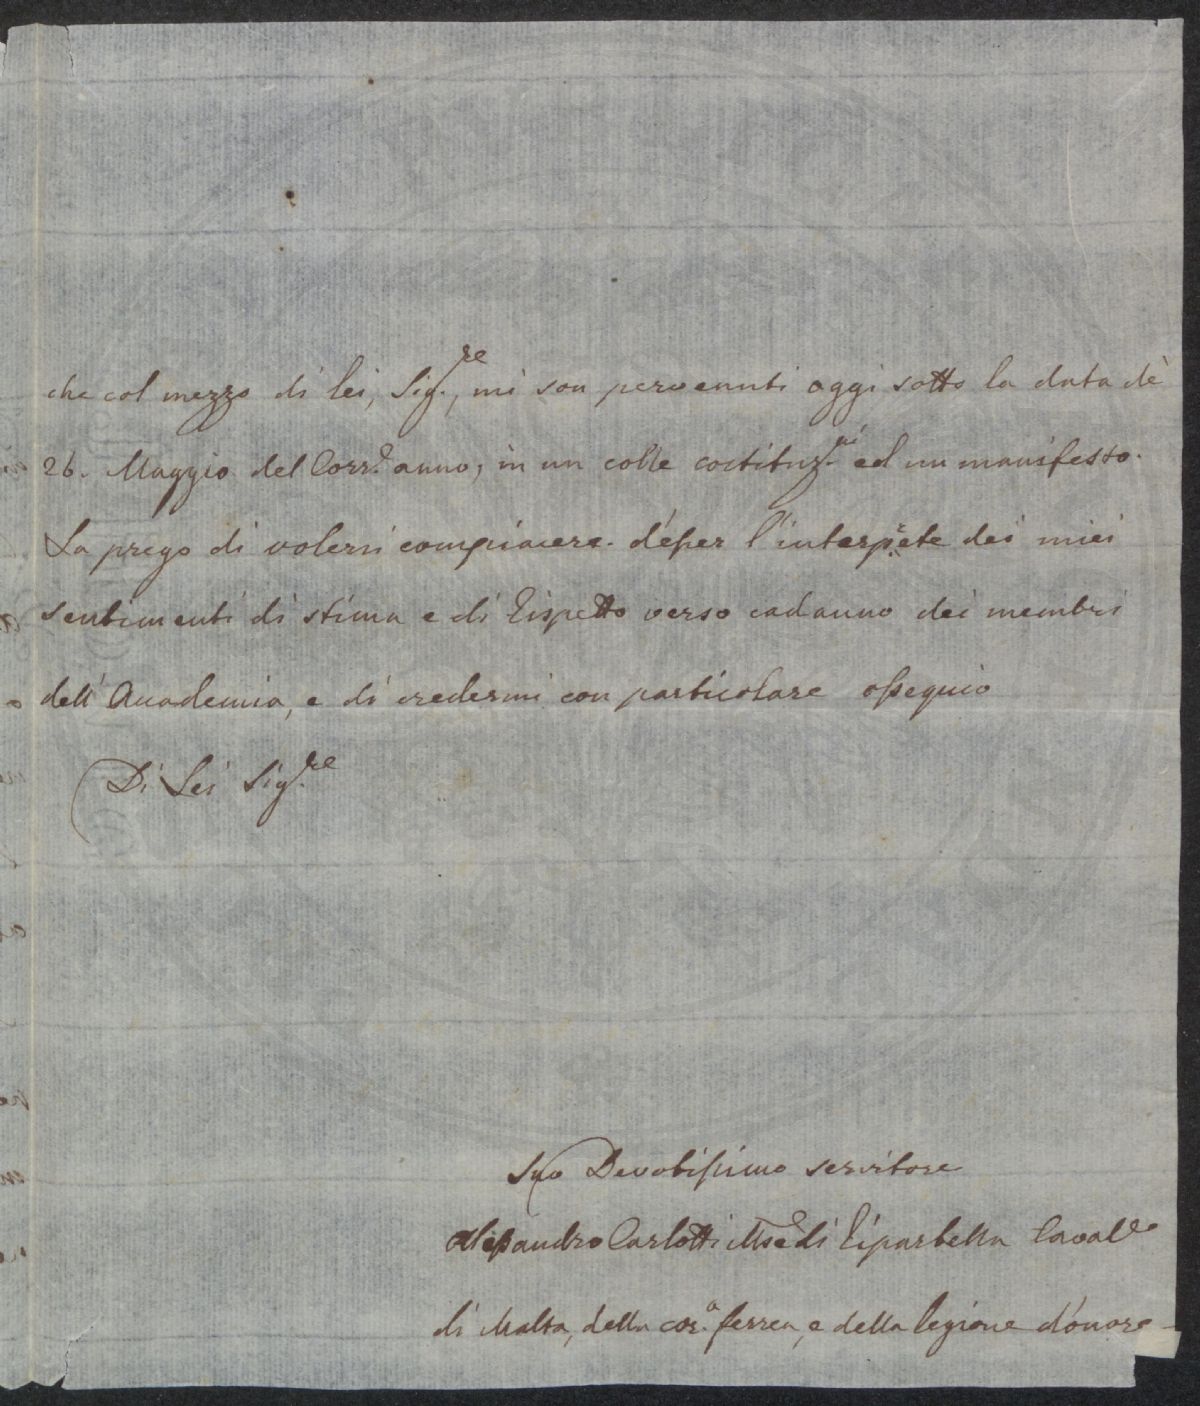 che col mezzo di lei, Sig.re, mi son pervenuti oggi sotto la data dè
26. Maggio del Corr.e anno, in un colle costituz.ni ed un manifesto.
La prego di volersi compiacere d'esser l'interprete dei miei
sentimenti di stima e di Rispetto verso cadauno dei membri
dell'Accademia, e di credermi con particolare ossequio
Di Lei Sig.re
Suo Devotissimo servitore
Alessandro Carlotti Mse di Riparbella Caval.e
di Malta, della cor.a ferrea, e della legione d'onore